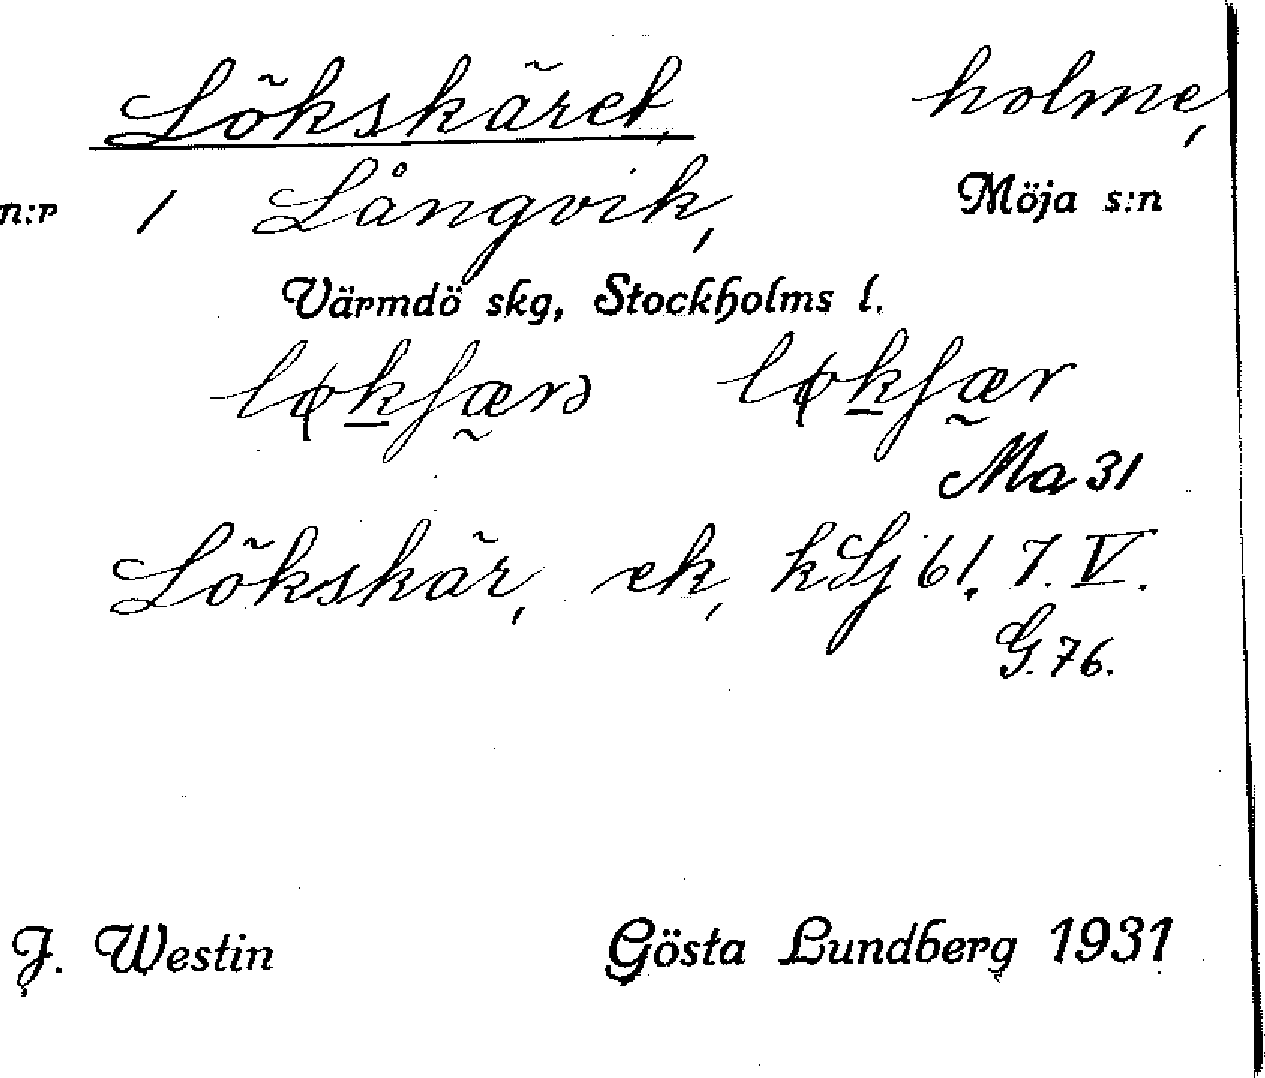 Lökskäret, holme,
n:r 1 Långvik, Möja s:n
Värmdö skg, Stockholms l.
Ma 31
Lökskär, ek, kLj 61. 7. V.
G. 76.
J. Westin Gösta Lundberg 1931